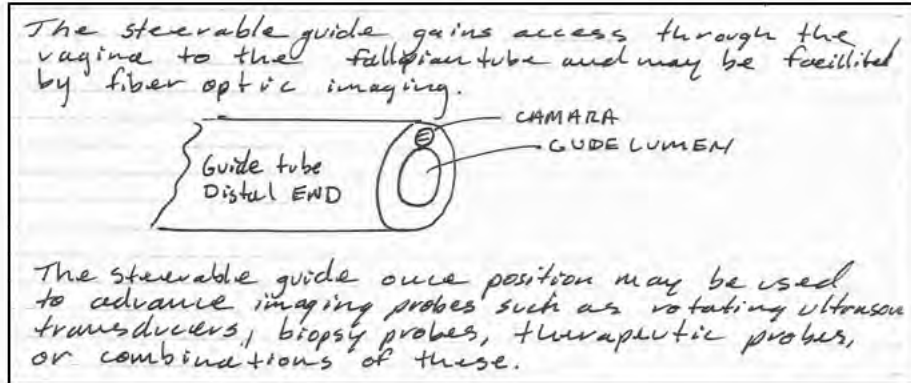 The steerable guide gains access through the
vagina to the fallopian tube and may be facillited
by fiber optic imaging.
CAMARA
GUDE LUMEN
Guide tube
Distal END
The steerable guide once position may be used
to advance imaging probes such as rotating ultrasoun
transducers, biopsy probes, therapeutic probes,
or combinations of these.